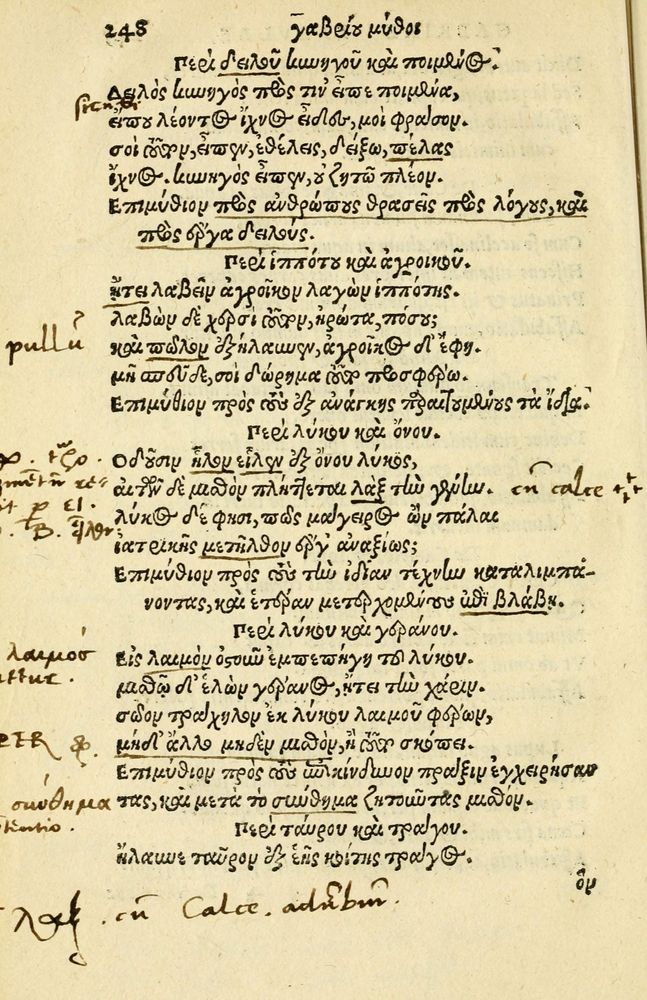 248 γαβρίου μύθοι
Περὶ δειλοῦ κυνηγοῦ καὶ ποιμένος.
Δειλὸς κυνηγὸς πρός τιν' εἶπε ποιμένα,
εἴπου λέοντος ἴχνος εἶδες, μοι φράσον.
σοὶ αὐτὸν, εἶπεν, ἐθέλεις, δείξω, πέλας
ἴχνος. κυνηγὸς εἶπεν, οὐ ζητῶ πλέον.
Επιμύθιον πρὸς ἀνθρώπους θρασεῖς πρὸς λόγους, καὶ
πρὸς ἔργα δειλούς.
Περὶ ἱππότου καὶ ἀγροικοῦ.
ᾔτει λαβεῖν ἀγροῖκον λαγὼν ἱππότης.
λαβὼν δὲ χερσὶ αὐτὸν, ἠρώτα, πόσου;
καὶ πῶλον ἐξήλαυνεν, ἀγροῖκος δ' ἔφη.
μὴ σπεῦδε, σοὶ δώρημα αὐτὸν προσφέρω.
Επιμύθιον πρὸς τοὺς ἐξ ἀνάγκης προϊεμένους τὰ ἴδια.
Περὶ λύκου καὶ ὄνου.
Οδοῦσιν ἧλον εἷλεν ἐξ ὄνου λύκος,
αὐτὸν δὲ μισθὸν πλήττεται λὰξ τὴν γένυν. cū calce
λύκος δέ φησι, πῶς μάγειρος ὢν πάλαι
ἰατρικῆς μετῆλθον ἔργ' ἀναξίως;
Επιμύθιον πρὸς τοὺς τὴν ἰδίαν τέχνην καταλιμπά-
νοντας, καὶ ἑτέραν μετερχομένους ἐπὶ βλάβῃ.
Περὶ λύκου καὶ γεράνου.
λαιμός Εἰς λαιμὸν ὀστοῦν ἐμπεπήγη τοῦ λύκου.
μισθῷ δ' ἑλὼν γέρανος, ᾔτει τὴν χάριν.
σῶον τράχηλον ἐκ λύκου λαιμοῦ φέρων,
μηδ' ἄλλο μηδὲν μισθὸν, ἢ αὐτὸν σκόπει.
Επιμύθιον πρὸς τοὺς ἐπικίνδυνον πρᾶξιν ἐγχειρήσαν
σύνθημα τας, καὶ μετὰ τὸ σύνθημα ζητοῦντας μισθόν.
Περὶ ταύρου καὶ τράγου.
ἤλαυνε ταῦρον ἐξ ἑῆς κοίτης τράγος.
ὃν
λὰξ. cū Calce. aduerbiū.